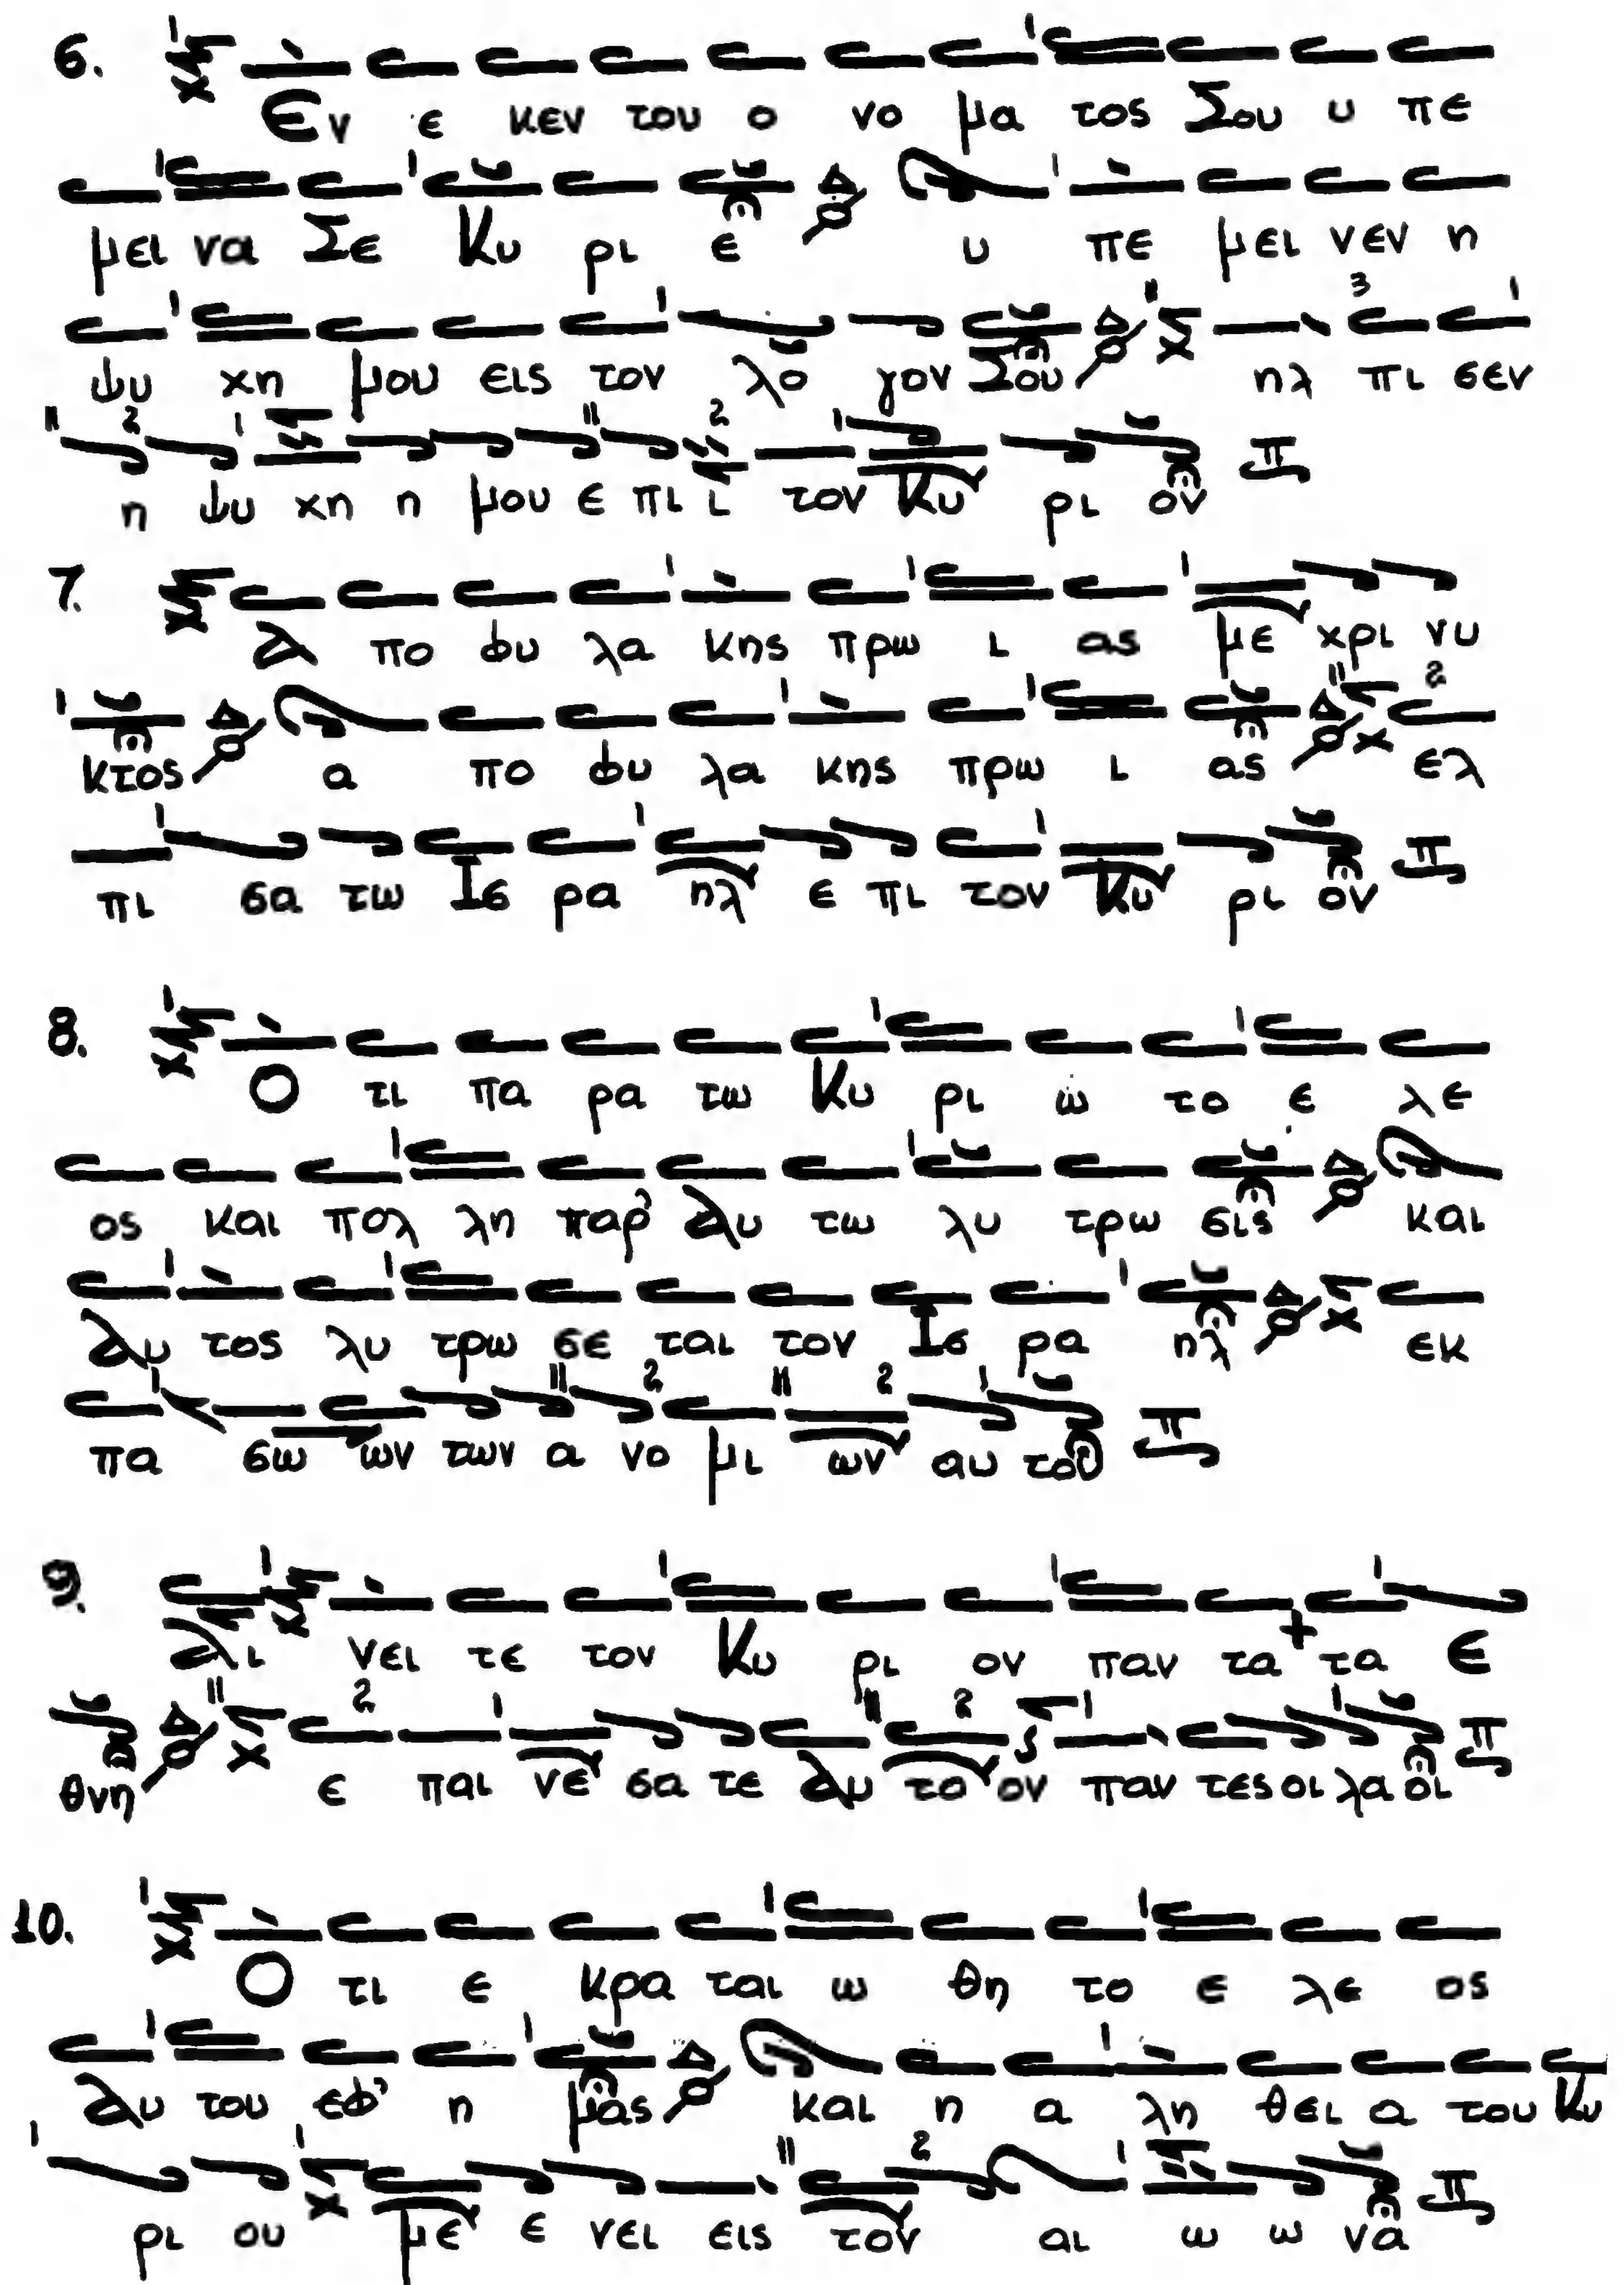 6. Εν ε κεν του ο νο μα τος Σου υ πε
μει να Σε Κυ ρι ε υ πε μει νεν η
ψυ χη μου εις τον λο γον Σου ηλ πι σεν
η ψυ χη η μου ε πι ι τον Κυ ρι ον
7. Α πο φυ λα κης πρω ι ας με χρι νυ
κτος α πο φυ λα κης πρω ι ας ελ
πι σα τω Ισ ρα ηλ ε πι τον Κυ ρι ον
8. Ο τι πα ρα τω Κυ ρι ω το ε λε
ος και πολ λη παρ' Αυ τω λυ τρω σις και
Αυ τος λυ τρω σε ται τον Ισ ρα ηλ εκ
πα σω ων των α νο μι ων αυ του
9. Αι νει τε τον Κυ ρι ον παν τα τα Ε
θνη ε παι νε σα τε Αυ το ον παν τες οι λα οι
10. Ο τι ε κρα ται ω θη το ε λε ος
Αυ του εφ' η μας και η α λη θει α του Κυ
ρι ου με ε νει εις τον αι ω ω να